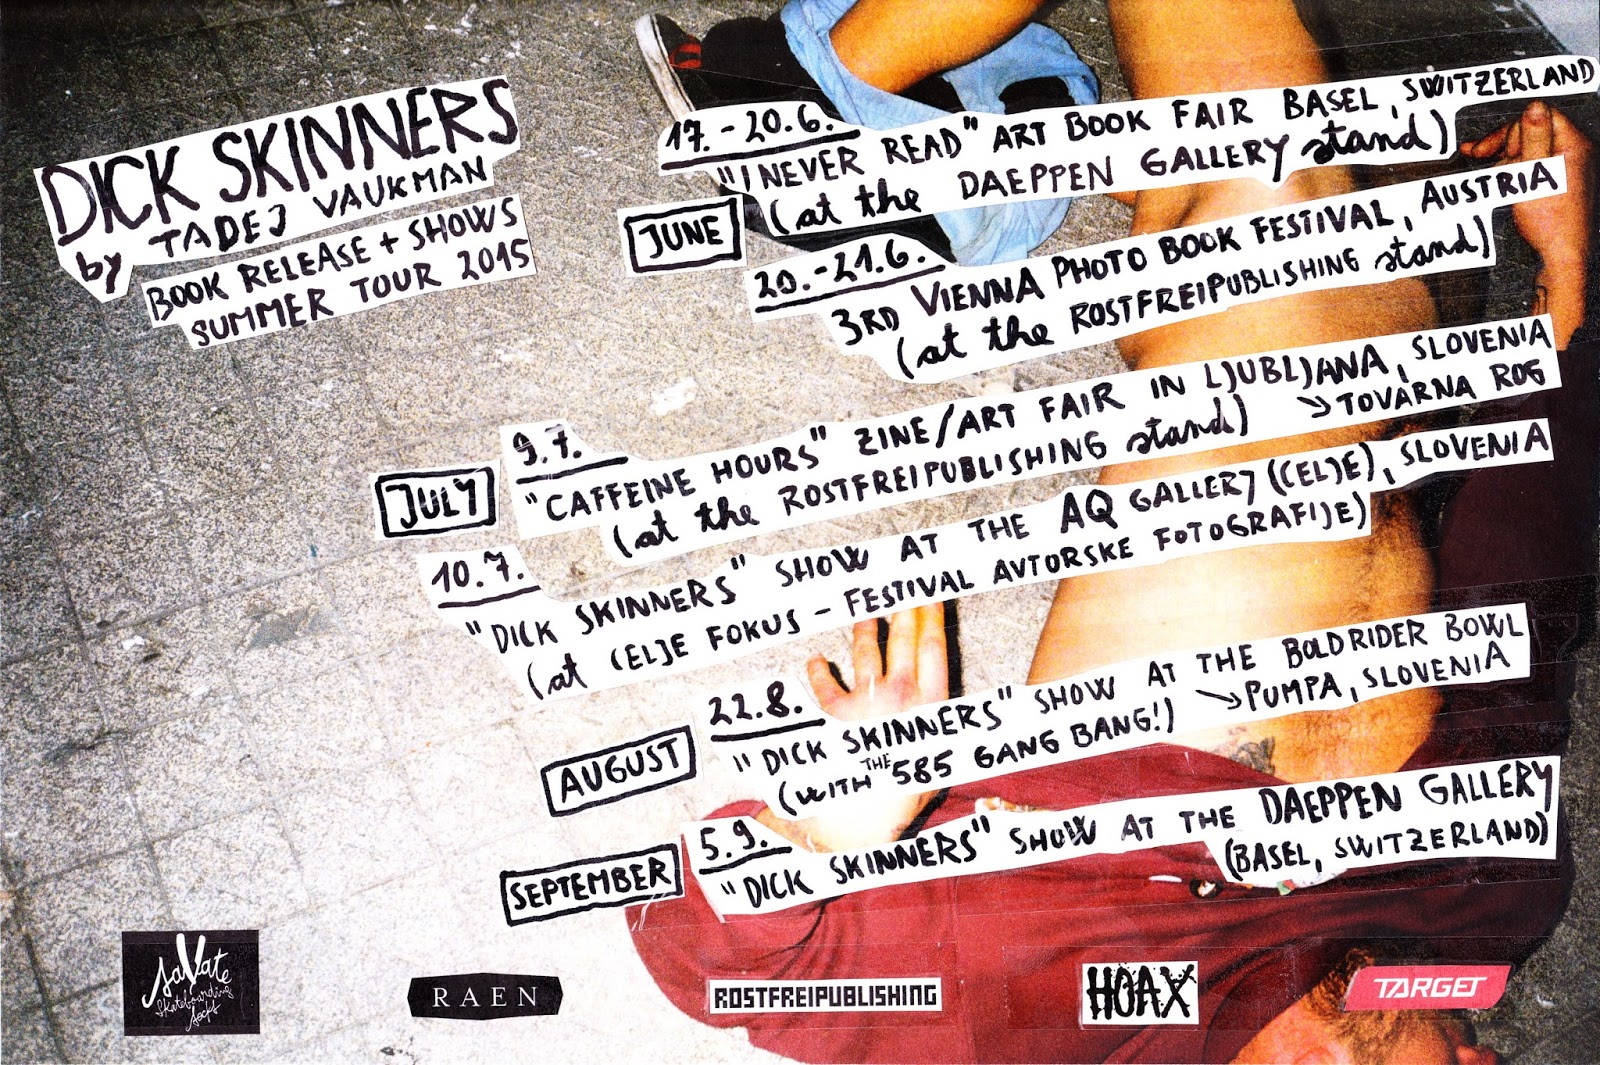 DICK SKINNERS
by TADEJ VAUKMAN
BOOK RELEASE + SHOWS
SUMMER TOUR 2015
JUNE
17. - 20.6.
"I NEVER READ" ART BOOK FAIR BASEL, SWITZERLAND
(at the DAEPPEN GALLERY stand)
20. - 21.6.
3RD VIENNA PHOTO BOOK FESTIVAL, AUSTRIA
(at the ROSTFREIPUBLISHING stand)
JULY
9.7.
"CAFFEINE HOURS" ZINE/ART FAIR IN LJUBLJANA, SLOVENIA
(at the ROSTFREIPUBLISHING stand) → TOVARNA ROG
10.7.
"DICK SKINNERS" SHOW AT THE AQ GALLERY (CELJE), SLOVENIA
(at CELJE FOKUS - FESTIVAL AVTORSKE FOTOGRAFIJE)
AUGUST
22.8.
"DICK SKINNERS" SHOW AT THE BOLDRIDER BOWL
(WITH THE 585 GANG BANG!) → PUMPA, SLOVENIA
SEPTEMBER
5.9.
"DICK SKINNERS" SHOW AT THE DAEPPEN GALLERY
(BASEL, SWITZERLAND)
saVate
skateboarding
socks
RAEN
ROSTFREIPUBLISHING
HOAX
TARGET